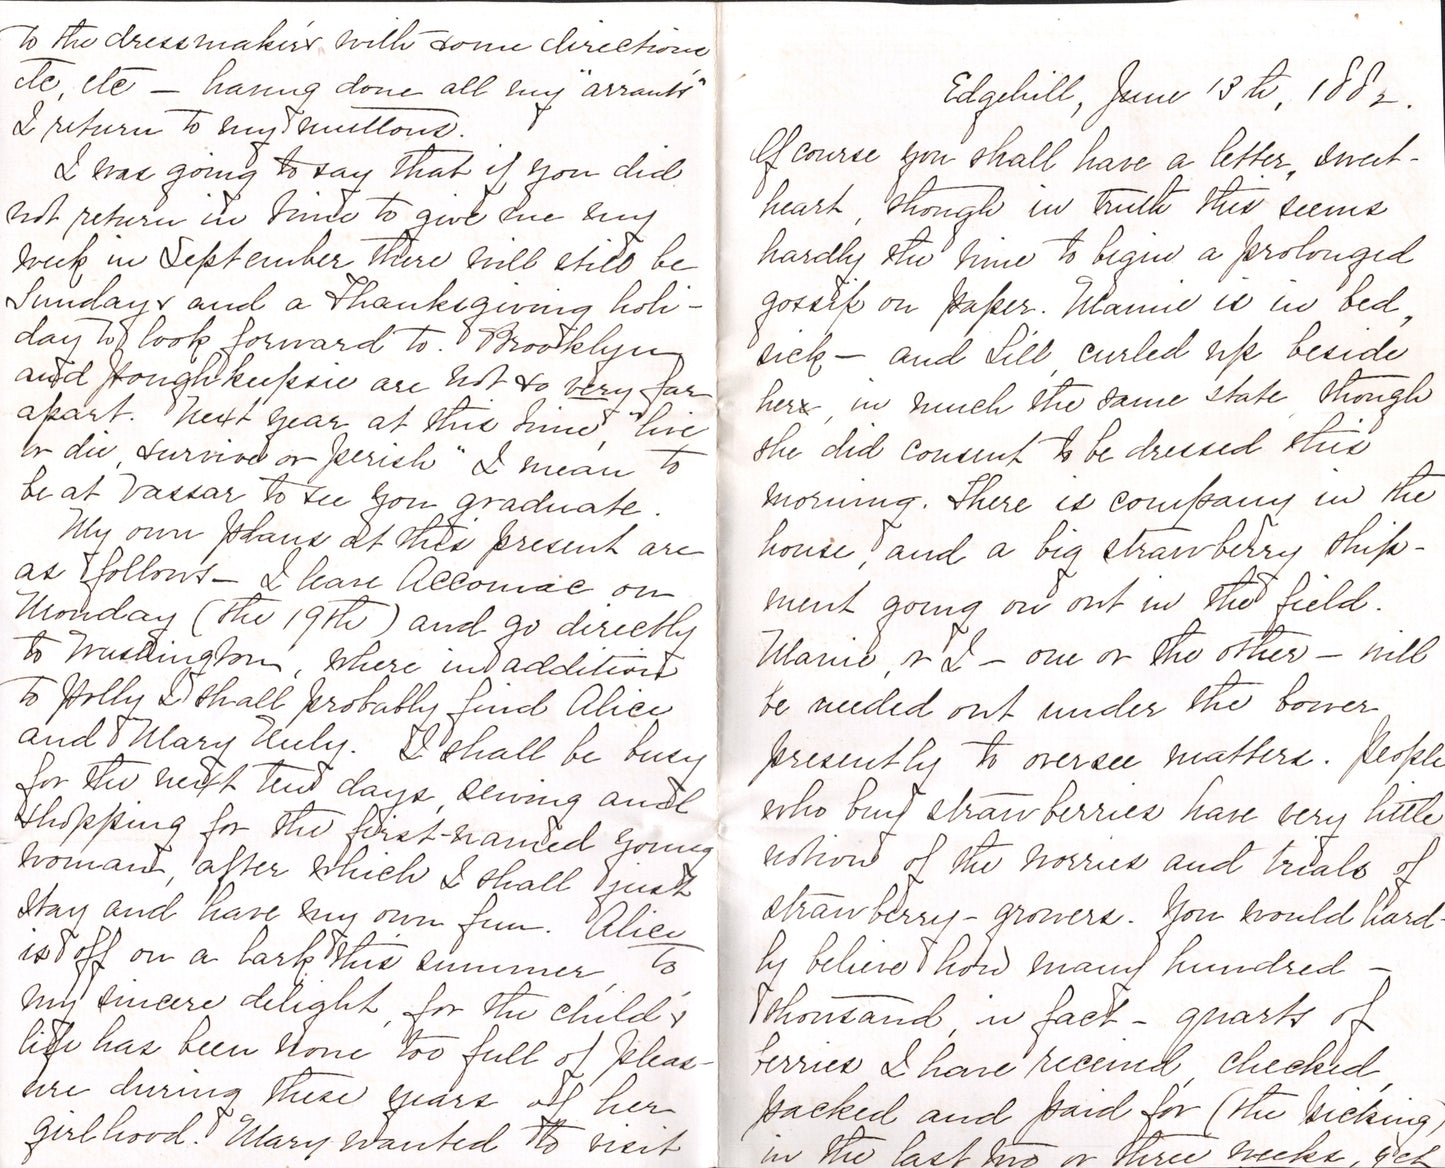 to the dressmaker's with some directions
etc, etc — having done all my "arrants"
I return to my muttons.
I was going to say that if you did
not return in time to give me my
week in September there will still be
Sundays and a Thanksgiving holi-
day to look forward to. Brooklyn
and Poughkeepsie are not so very far
apart. Next year at this time, "live
or die, survive or perish" I mean to
be at Vassar to see you graduate.
My own plans at this present are
as follows — I leave Accomac on
Monday (the 19th) and go directly
to Washington, where in addition
to Polly I shall probably find Alice
and Mary Nuly. I shall be busy
for the next ten days, sewing and
shopping for the first-named young
woman, after which I shall just
stay and have my own fun. Alice
is off on a lark this summer, to
my sincere delight, for the child's
life has been none too full of pleas-
ure during these years of her
girlhood. Mary wanted to visit
Edgehill, June 13th, 1882.
Of course you shall have a letter, sweet-
heart, though in truth this seems
hardly the time to begin a prolonged
gossip on paper. Mamie is in bed,
sick — and Lill, curled up beside
her, in much the same state though
she did consent to be dressed this
morning. There is company in the
house, and a big strawberry ship-
ment going on out in the field.
Mamie, or I — one or the other — will
be needed out under the bower
presently to oversee matters. People
who buy strawberries have very little
notion of the worries and trials of
strawberry-growers. You would hard-
ly believe how many hundred —
thousand, in fact — quarts of
berries I have received, checked,
packed and paid for (the picking)
in the last two or three weeks, yet